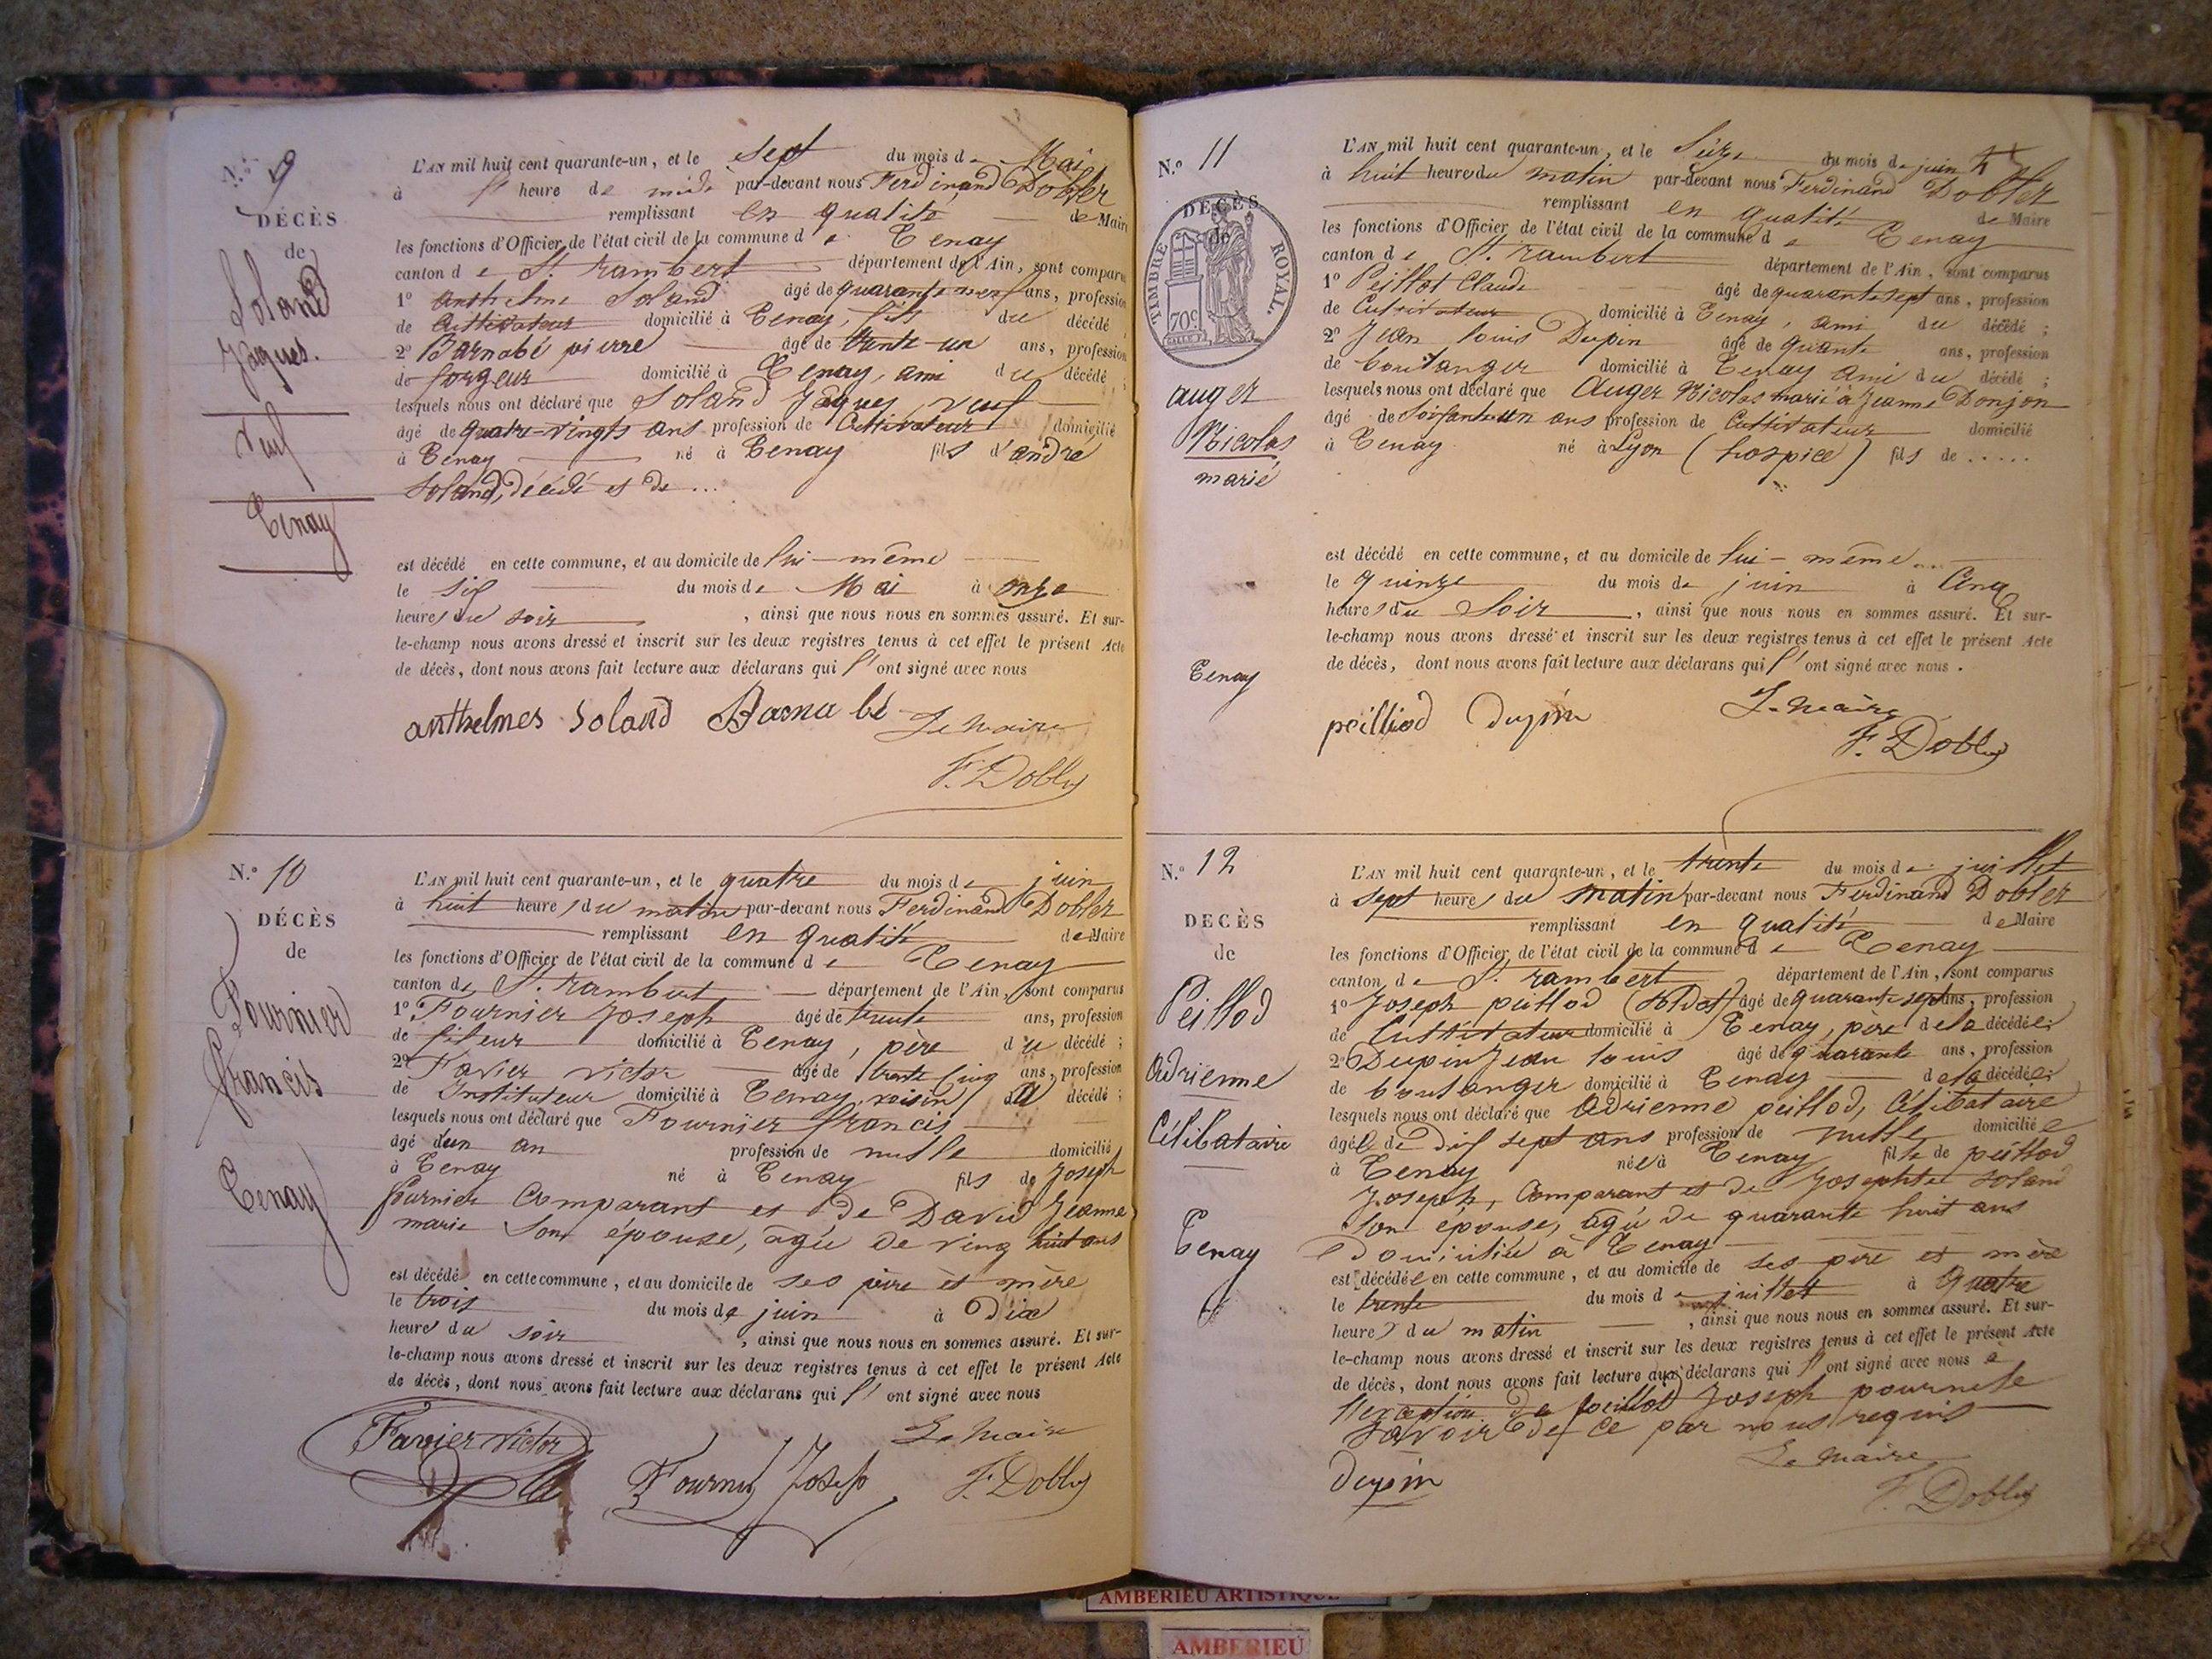 N.º 9
DÉCÈS
de
Soland
Jaques.
veuf
Tenay
L'AN mil huit cent quarante-un, et le sept du mois de Mai
à heure de midi par-devant nous Ferdinand Dobler
remplissant en qualité de Maire
les fonctions d'Officier de l'état civil de la commune de Tenay
canton de St. rambert département de l'Ain, sont comparus
1º anthelme Soland âgé de quarante neuf ans, profession
de Cultivateur domicilié à Tenay, fils du décédé ;
2º Barnabé pierre âgé de trente-un ans, profession
de forgeur domicilié à Tenay, ami du décédé ;
lesquels nous ont déclaré que Soland Jaques, veuf
âgé de quatre-vingts ans profession de Cultivateur domicilié
à Tenay né à Tenay fils d'andré
Soland, décédé et de ...
est décédé en cette commune, et au domicile de lui-même
le six du mois de Mai à onze
heures du soir, ainsi que nous nous en sommes assuré. Et sur-
le-champ nous avons dressé et inscrit sur les deux registres tenus à cet effet le présent Acte
de décès, dont nous avons fait lecture aux déclarans qui l'ont signé avec nous
anthelmes Soland Barnabé Le maire
F. Dobler
N.º 10
DÉCÈS
de
Fournier
francis
Tenay
L'AN mil huit cent quarante-un, et le quatre du mois de juin
à huit heures du matin par-devant nous Ferdinand Dobler
remplissant en qualité de Maire
les fonctions d'Officier de l'état civil de la commune de Tenay
canton de St. rambert département de l'Ain, sont comparus
1º Fournier Joseph âgé de trente ans, profession
de fileur domicilié à Tenay, père du décédé ;
2º Favier victor âgé de trente cinq ans, profession
de Instituteur domicilié à Tenay, voisin du décédé ;
lesquels nous ont déclaré que Fournier francis
âgé d'un an profession de nulle domicilié
à Tenay né à Tenay fils de Joseph
fournier Comparant et de David Jeanne
marie son épouse, âgée de ving huit ans
est décédé en cette commune, et au domicile de ses père et mère
le trois du mois de juin à Dix
heures du soir, ainsi que nous nous en sommes assuré. Et sur-
le-champ nous avons dressé et inscrit sur les deux registres tenus à cet effet le présent Acte
de décès, dont nous avons fait lecture aux déclarans qui l'ont signé avec nous
Favier victor Le maire
Fournier Joseph F. Dobler
N.º 11
DECÈS
de
TIMBRE ROYAL
70c
auger
Nicolas
marié
Tenay
L'AN mil huit cent quarante-un, et le Seize du mois de juin
à huit heures du matin par-devant nous Ferdinand Dobler
remplissant en qualité de Maire
les fonctions d'Officier de l'état civil de la commune de Tenay
canton de St. rambert département de l'Ain, sont comparus
1º Peillot Claude âgé de quarante sept ans, profession
de Cultivateur domicilié à Tenay, ami du décédé ;
2º Jean louis Dupin âgé de quarante ans, profession
de boulanger domicilié à Tenay ami du décédé ;
lesquels nous ont déclaré que Auger Nicolas marié à Jeanne Donjon
âgé de soixante un ans profession de Cultivateur domicilié
à Tenay né à Lyon (hospice) fils de .....
est décédé en cette commune, et au domicile de lui-même
le quinze du mois de juin à Cinq
heures du Soir, ainsi que nous nous en sommes assuré. Et sur-
le-champ nous avons dressé et inscrit sur les deux registres tenus à cet effet le présent Acte
de décès, dont nous avons fait lecture aux déclarans qui l'ont signé avec nous.
peilliod Dupin Le maire
F. Dobler
N.º 12
DECÈS
de
Peillod
Adrienne
Célibataire
Tenay
L'AN mil huit cent quarante-un, et le trente du mois de juillet
à sept heures du matin par-devant nous Ferdinand Dobler
remplissant en qualité de Maire
les fonctions d'Officier de l'état civil de la commune de Tenay
canton de St. rambert département de l'Ain, sont comparus
1º Joseph peillod âgé de quarante sept ans, profession
de Cultivateur domicilié à Tenay, père de la décédée ;
2º Dupin Jean louis âgé de quarante ans, profession
de boulanger domicilié à Tenay de la décédée ;
lesquels nous ont déclaré que Adrienne peillod, Célibataire
âgée de Dix sept ans profession de nulle domiciliée
à Tenay née à Tenay fille de peillod
Joseph, Comparant et de Josephte Soland
son épouse, âgée de quarante huit ans
Domiciliée à Tenay
est décédée en cette commune, et au domicile de ses père et mère
le trente du mois de juillet à quatre
heures du matin, ainsi que nous nous en sommes assuré. Et sur-
le-champ nous avons dressé et inscrit sur les deux registres tenus à cet effet le présent Acte
de décès, dont nous avons fait lecture aux déclarans qui l'ont signé avec nous à
l'exception de peillod Joseph pour ne le
savoir de ce par nous requis
Le maire
Dupin F. Dobler
AMBERIEU ARTISTIQUE
AMBERIEU